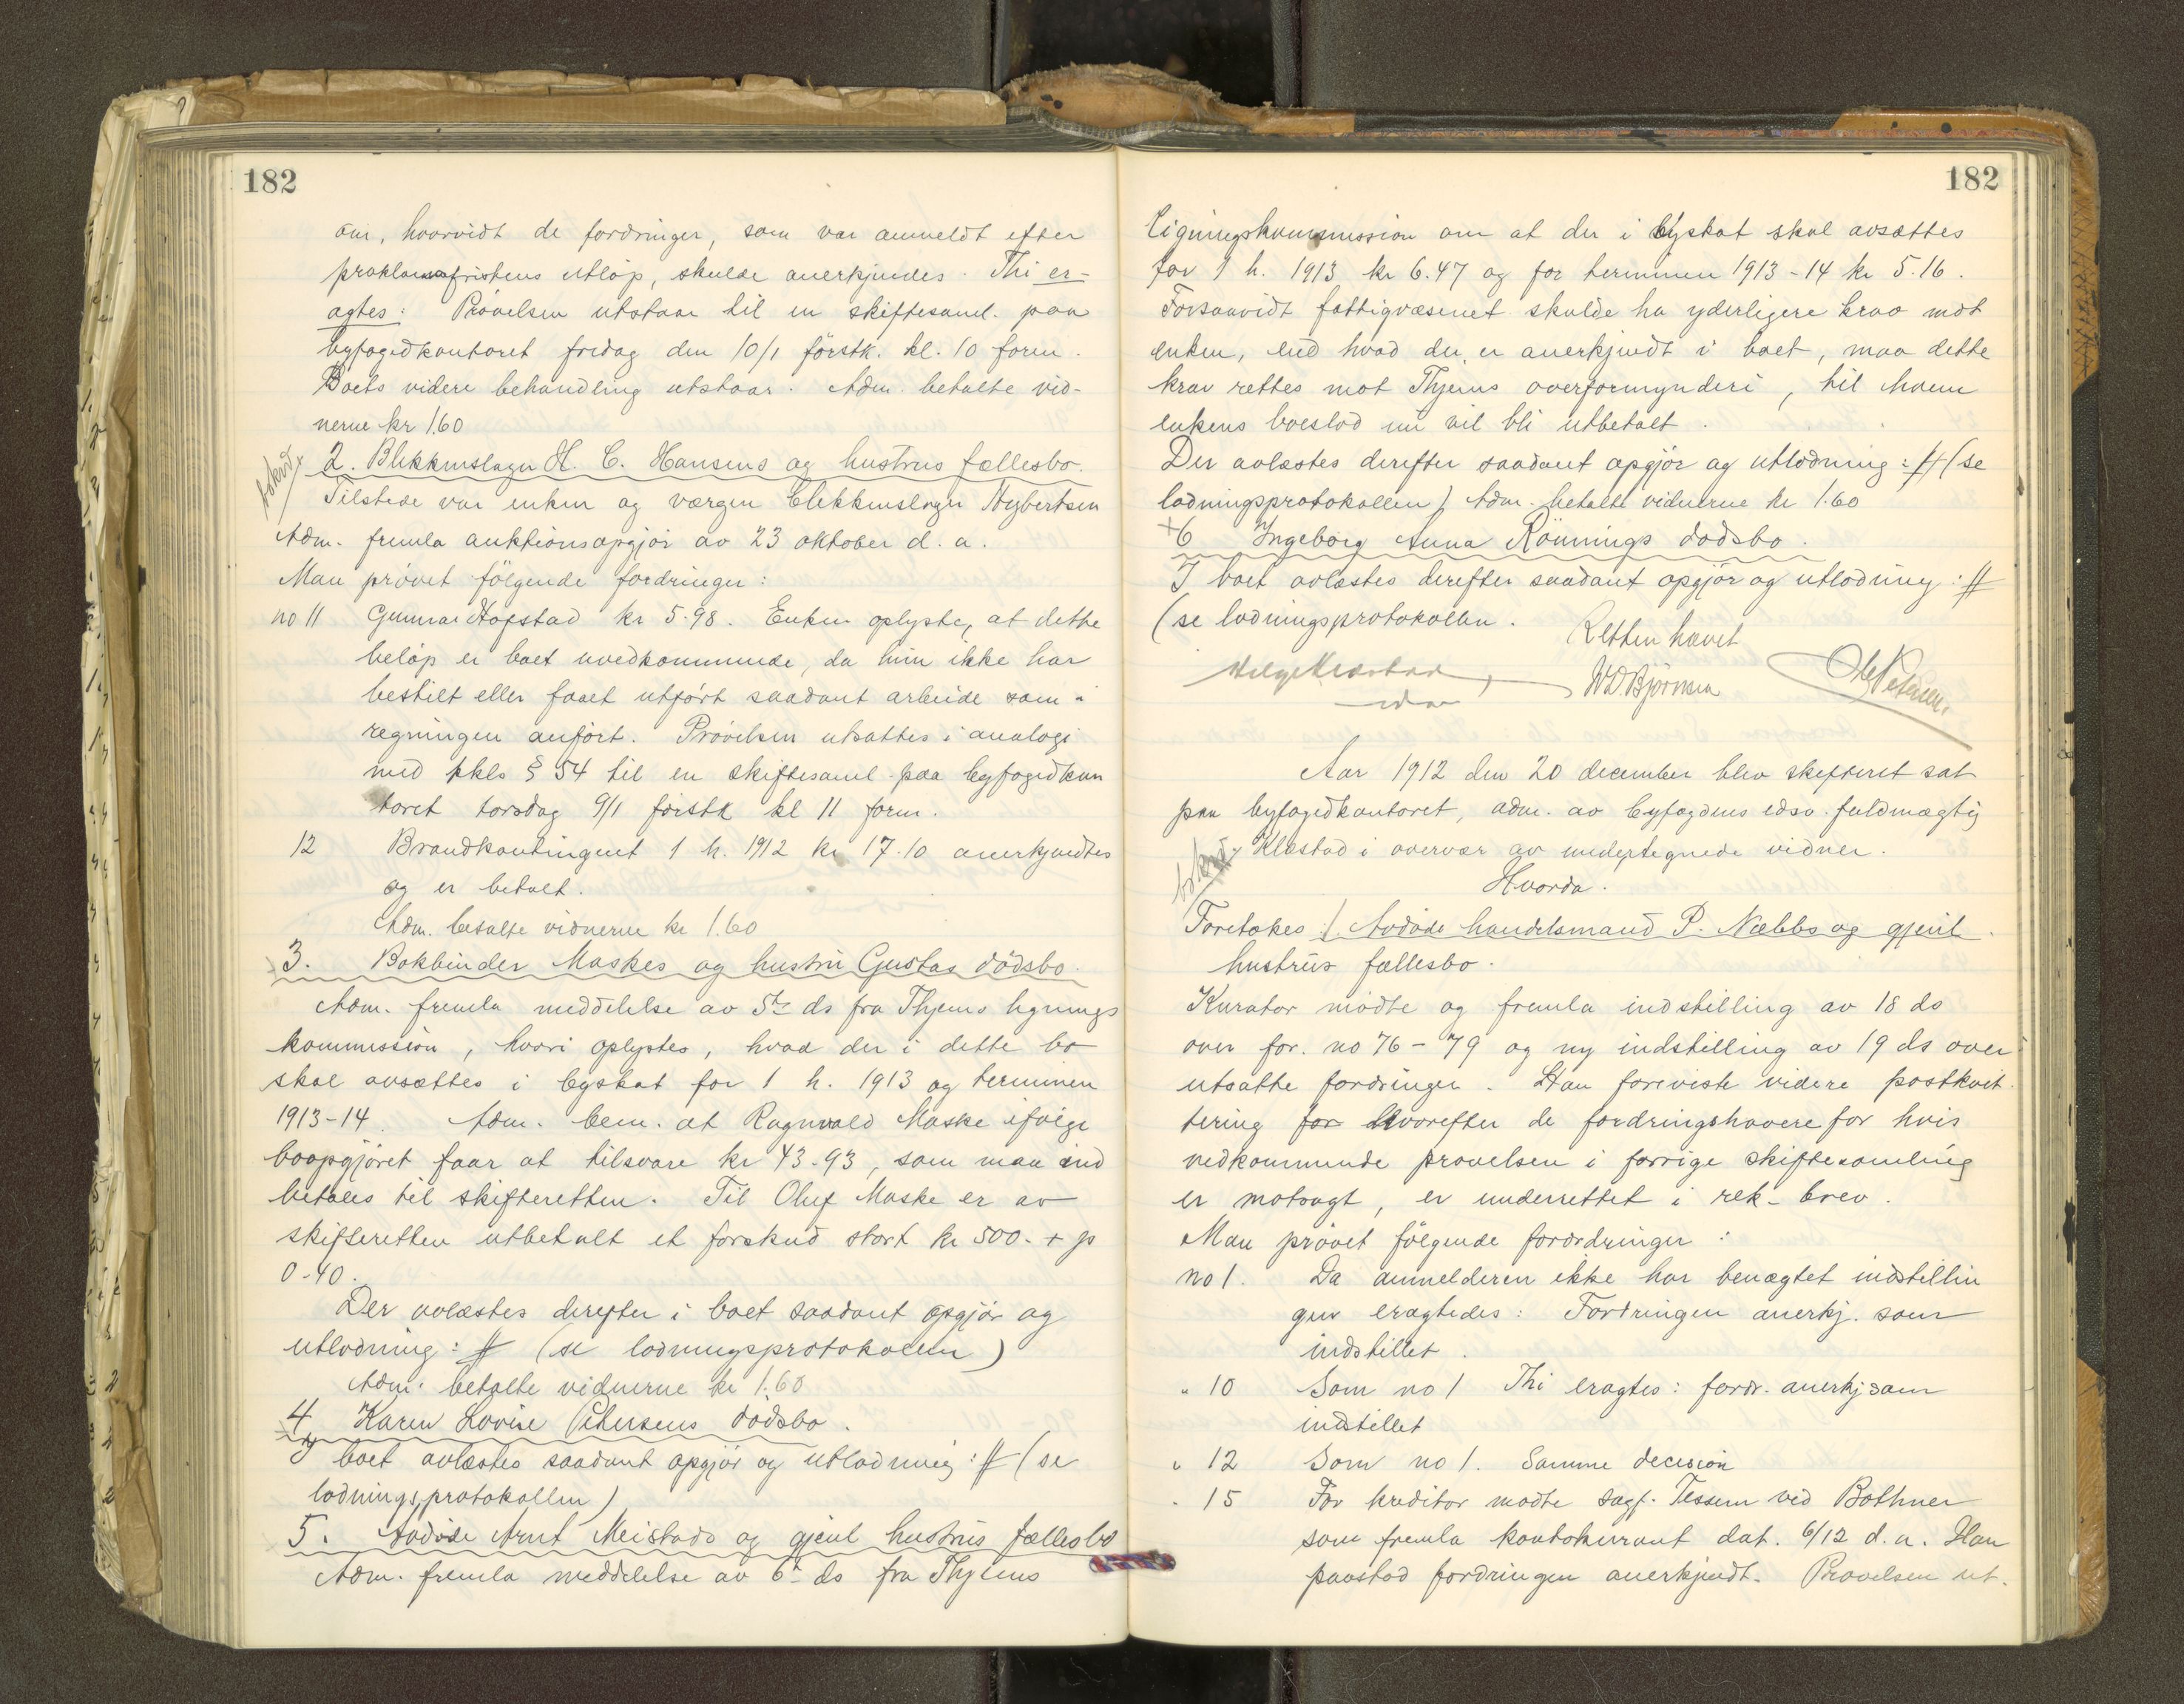 182
om, hvorvidt de fordringer, som var anmeldt efter
proklamafristens utløp, skulde anerkjendes. Thi er-
agtes: Prøvelsen utstaar til en skiftesaml. paa
byfogedkontoret fredag den 10/1 førstk. kl. 10 form.
Boets videre behandling utstaar. Adm. betalte vid-
nerne kr 1.60
2. Blikkenslager H. C. Hansens og hustrus fællesbo.
Tilstede var enken og vergen blikkenslager Hybertsen
Adm. fremla auktionsopgjør av 23 oktober d. a.
Man prøvet følgende fordringer:
no 11 Gunnar Hofstad kr 5.98. Enken oplyste, at dette
beløp er boet uvedkommende, da hun ikke har
bestilt eller faaet utført saadant arbeide som i
regningen anført. Prøvelsen utsattes i analogi
med kkls § 54 til en skiftesaml. paa byfogedkon
toret torsdag 9/1 førstk kl 11 form.
12 Brandkontingent 1 h. 1912 kr 17.10 anerkjendtes
og er betalt.
Adm. betalte vidnerne kr 1.60
3. Bokbinder Maskes og hustru Gustas dødsbo.
Adm. fremla meddelelse av 5te ds fra Thjems lignings
kommission, hvori oplystes, hvad der i dette bo
skal avsættes i byskat for 1 h. 1913 og terminen
1913-14. Adm. bem. at Ragnvald Maske ifølge
boopgjøret faar at tilsvare kr 43.93, som maa ind
betales til skifteretten. Til Oluf Maske er av
skifteretten utbetalt et forskud stort kr 500.- + p
0-40.
Der avlæstes derefter i boet saadant opgjør og
utlodning: # (se lodningsprotokollen)
Adm. betalte vidnerne kr 1.60
4 Karen Lovise Petersens dødsbo.
I boet avlæstes saadant opgjør og utlodning: # (se
lodningsprotokollen)
5. Avdøde Arnt Meistads og gjenl hustrus fællesbo
Adm. fremla meddelelse av 6te ds fra Thjems
182
ligningskommission om at der i byskat skal avsættes
for 1 h. 1913 kr 6.47 og for terminen 1913-14 kr 5.16.
Forsaavidt fattigvæsenet skulde ha yderligere krav mot
enken, end hvad der er anerkjendt i boet, maa dette
krav rettes mot Thjems overformynderi, til hvem
enkens boeslod nu vil bli utbetalt.
Der avlæstes derefter saadant opgjør og utlodning: # (se
lodningsprotokollen) Adm. betalte vidnerne kr 1.60
+6 Ingeborg Anna Rønnings dødsbo.
I boet avlæstes derefter saadant opgjør og utlodning: #
(se lodningsprotokollen.
Retten hævet
W.D. Bjørnsen Petersen.
Aar 1912 den 20 december blev skifteret sat
paa byfogedkontoret, adm. av byfogdens edsv. fuldmægtig
Klæstad i overvær av undertegnede vidner.
Hvorda.
Foretokes: 1. Avdøde handelsmand P. Næbbs og gjenl.
hustrus fællesbo.
Kurator mødte og fremla indstilling av 18 ds
over for. no 76 - 79 og ny indstilling av 19 ds over
utsatte fordringer. Han foreviste videre postkvit
tering for hvorefter de fordringshavere for hvis
vedkommende prøvelsen i forrige skiftesamling
er motsagt, er underrettet i rek.- brev.
Man prøvet følgende forordringer:
no 1. Da anmelderen ikke har benægtet indstillin
gen eragtedes: Fordringen anerkj. som
indstillet.
" 10 Som no 1 Thi eragtes: fordr. anerkj som
indstillet
" 12 Som no 1. Samme decision
" 15 For kreditor mødte sagf. Tessem ved Bothner
som fremla kontokurant dat. 6/12 d. a. Han
paastod fordringen anerkjendt. Prøvelsen ut-